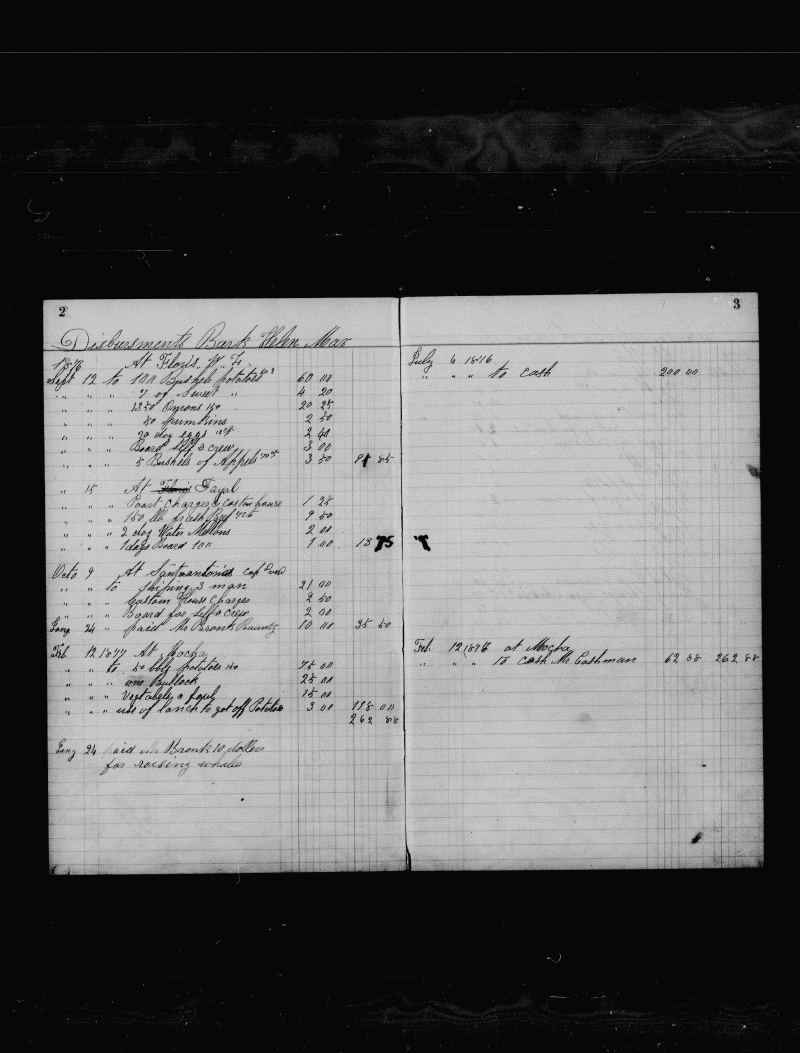 2
Disbursments Bark Helen Mar
1876 At Floris. W. I.
Sept 12 to 100 Bushels potatoes 60 00
" " " " 7 of Sweet " 4 20
" " " 1350 Onions 150 20 25
" " " 50 pumkins 2 50
" " " 20 doz eggs 2 40
" " " Board self & crew 3 00
" " " 5 Bushels of Appels 3 50 85
" 15 At Floris Fayal
" " " Poart Charges & Custom house 1 25
" " " 150 lb fresh Beef 9 50
" " " 2 doz Water Mellons 2 00
" " " 1 days Board 100 1 00 13 75
Octo 9 At Santuantonias Cap Verd
" " to Shiping 3 man 21 00
" " " Custom House Charges 2 50
" " " Board for Self & crew 2 00
24 " paid Mr Bronk Bounty 10 00 35 50
Feb 12 1877 At Mocha
" " to 50 bbls potatoes 150 75 00
" " " one Bullock 25 00
" " " Vegtables & fowl 15 00
" " " use of lanch to get off Potatoes 3 00 118 00
262 88
24 paid Mr Bronk 10 dollers
for raising whale
3
July 6 1876
" " " to Cash 200 00
Feb. 12 at Mocha
" " " To Cash Mr Cashman 62 88 262 88